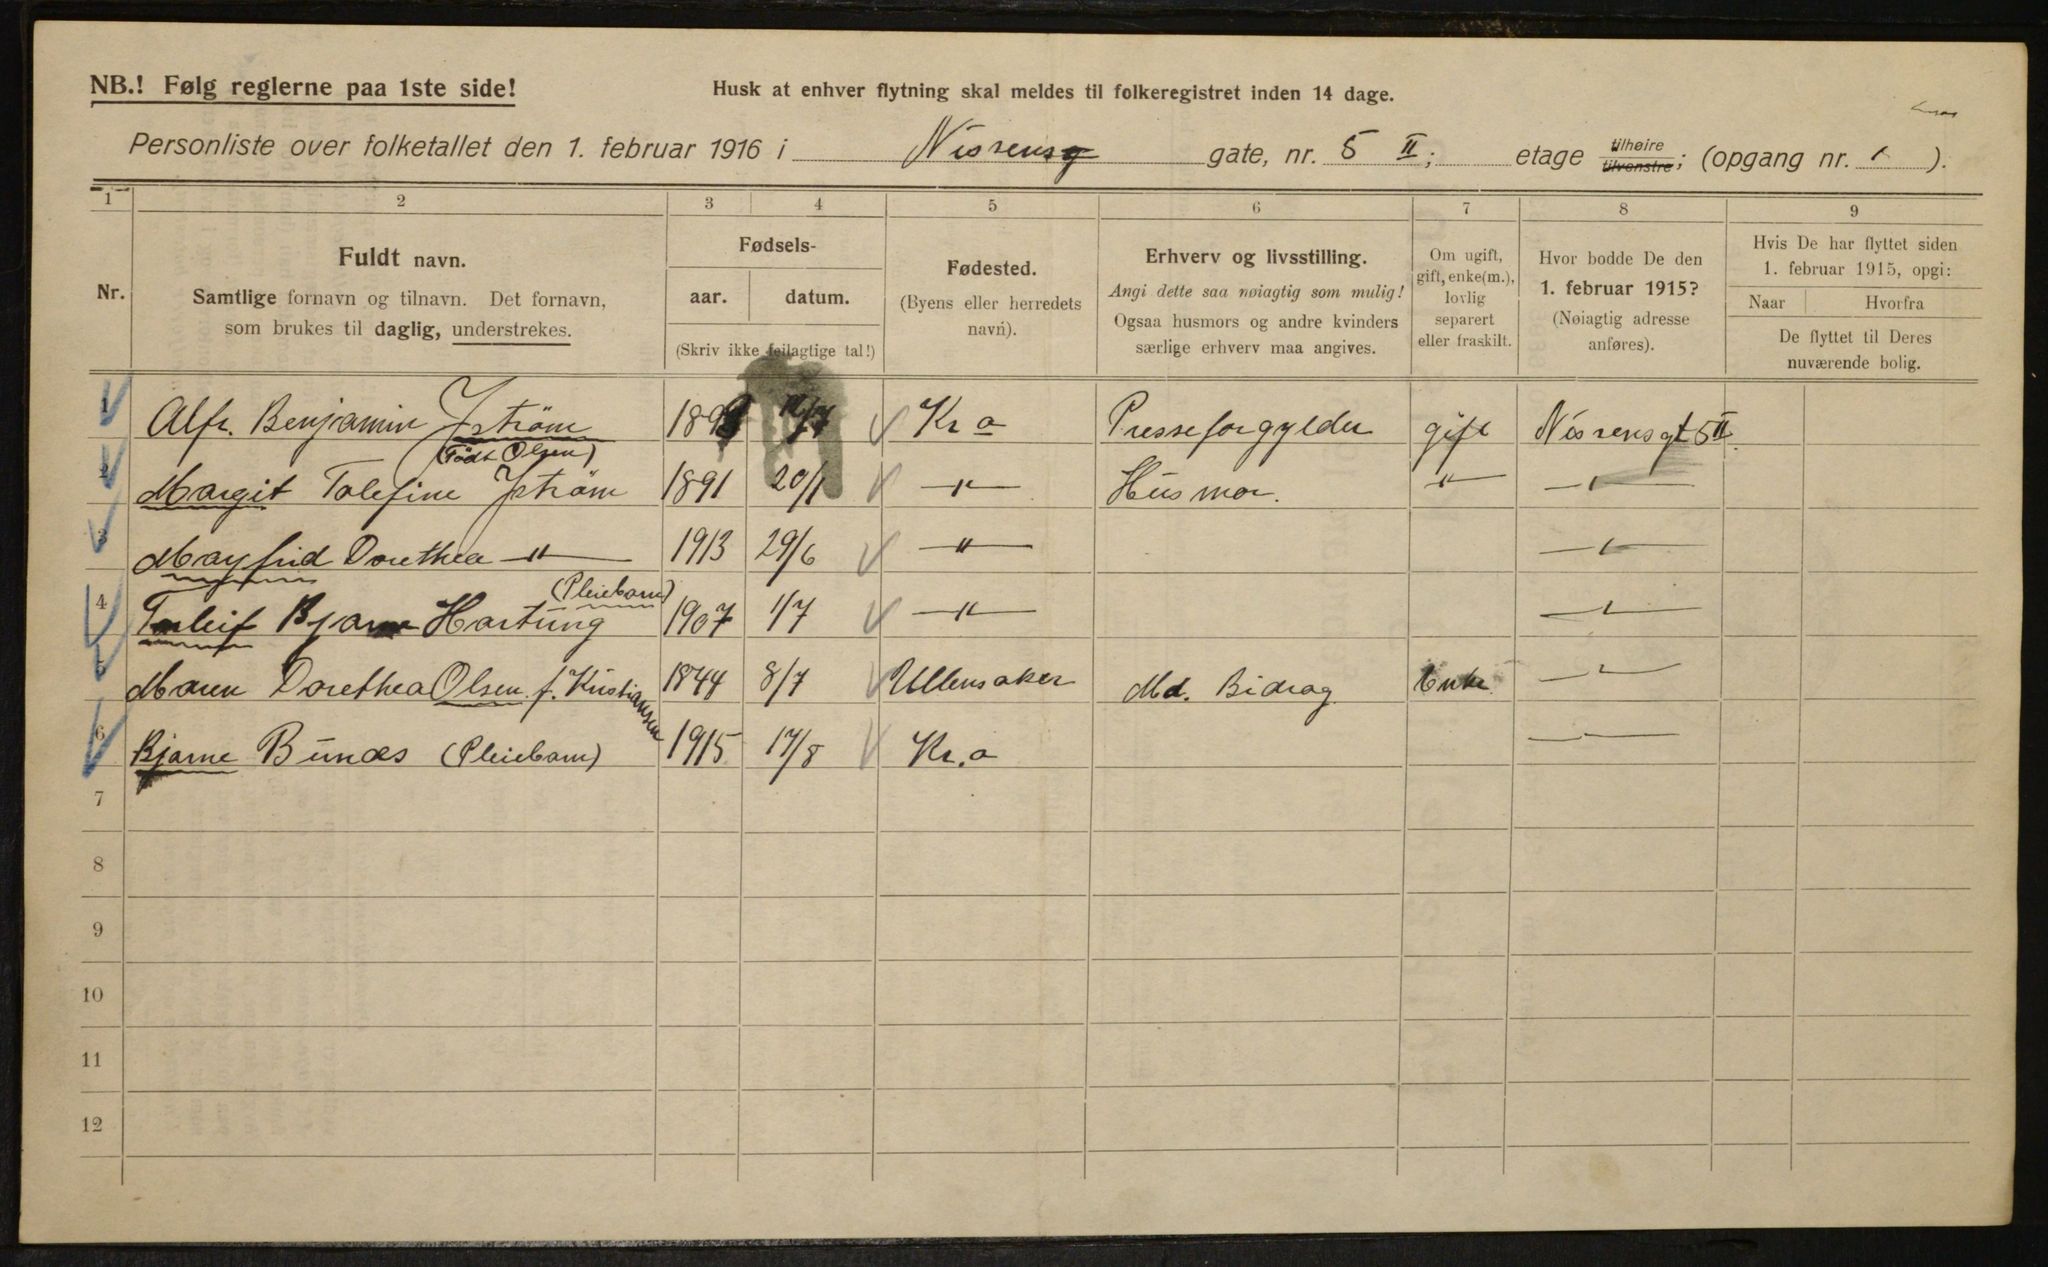 NB.! Følg reglerne paa 1ste side!
Husk at enhver flytning skal meldes til folkeregistret inden 14 dage.
Personliste over folketallet den 1. februar 1916 i Nisrensg gate, nr. 5 II; etage tilhøire tilvenstre; (opgang nr. 1 ).
1 2 3 4 5 6 7 8 9
Nr.
Fuldt navn.
Samtlige fornavn og tilnavn. Det fornavn,
som brukes til daglig, understrekes.
Fødsels-
aar. datum.
(Skriv ikke feilagtige tal!)
Fødested.
(Byens eller herredets
navn).
Erhverv og livsstilling.
Angi dette saa nøiagtig som mulig!
Ogsaa husmors og andre kvinders
særlige erhverv maa angives.
Om ugift,
gift, enke(m.),
lovlig
separert
eller fraskilt.
Hvor bodde De den
1. februar 1915?
(Nøiagtig adresse
anføres).
Hvis De har flyttet siden
1. februar 1915, opgi:
Naar Hvorfra
De flyttet til Deres
nuværende bolig.
1 Alfr. Benjamin Iström Kra Presseforgylder gift Nisrensgt 5 II.
(Född Olsen)
2 Margit Tolefine Iström 1891 20/1 —"— Husmor. —"— —"—
3 Mayfrid Dorethea —"— 1913 29/6 —"— —"—
(Pleiebarn)
4 Torleif Bjarne Hartung 1907 1/7 —"— —"—
5 Maren Dorethea Olsen f. Kristiansen 1844 8/7 Ullensaker Md. Bidrag Enke —"—
6 Bjarne Bunæs (Pleiebarn) 1915 17/8 Kr.a —"—
7
8
9
10
11
12